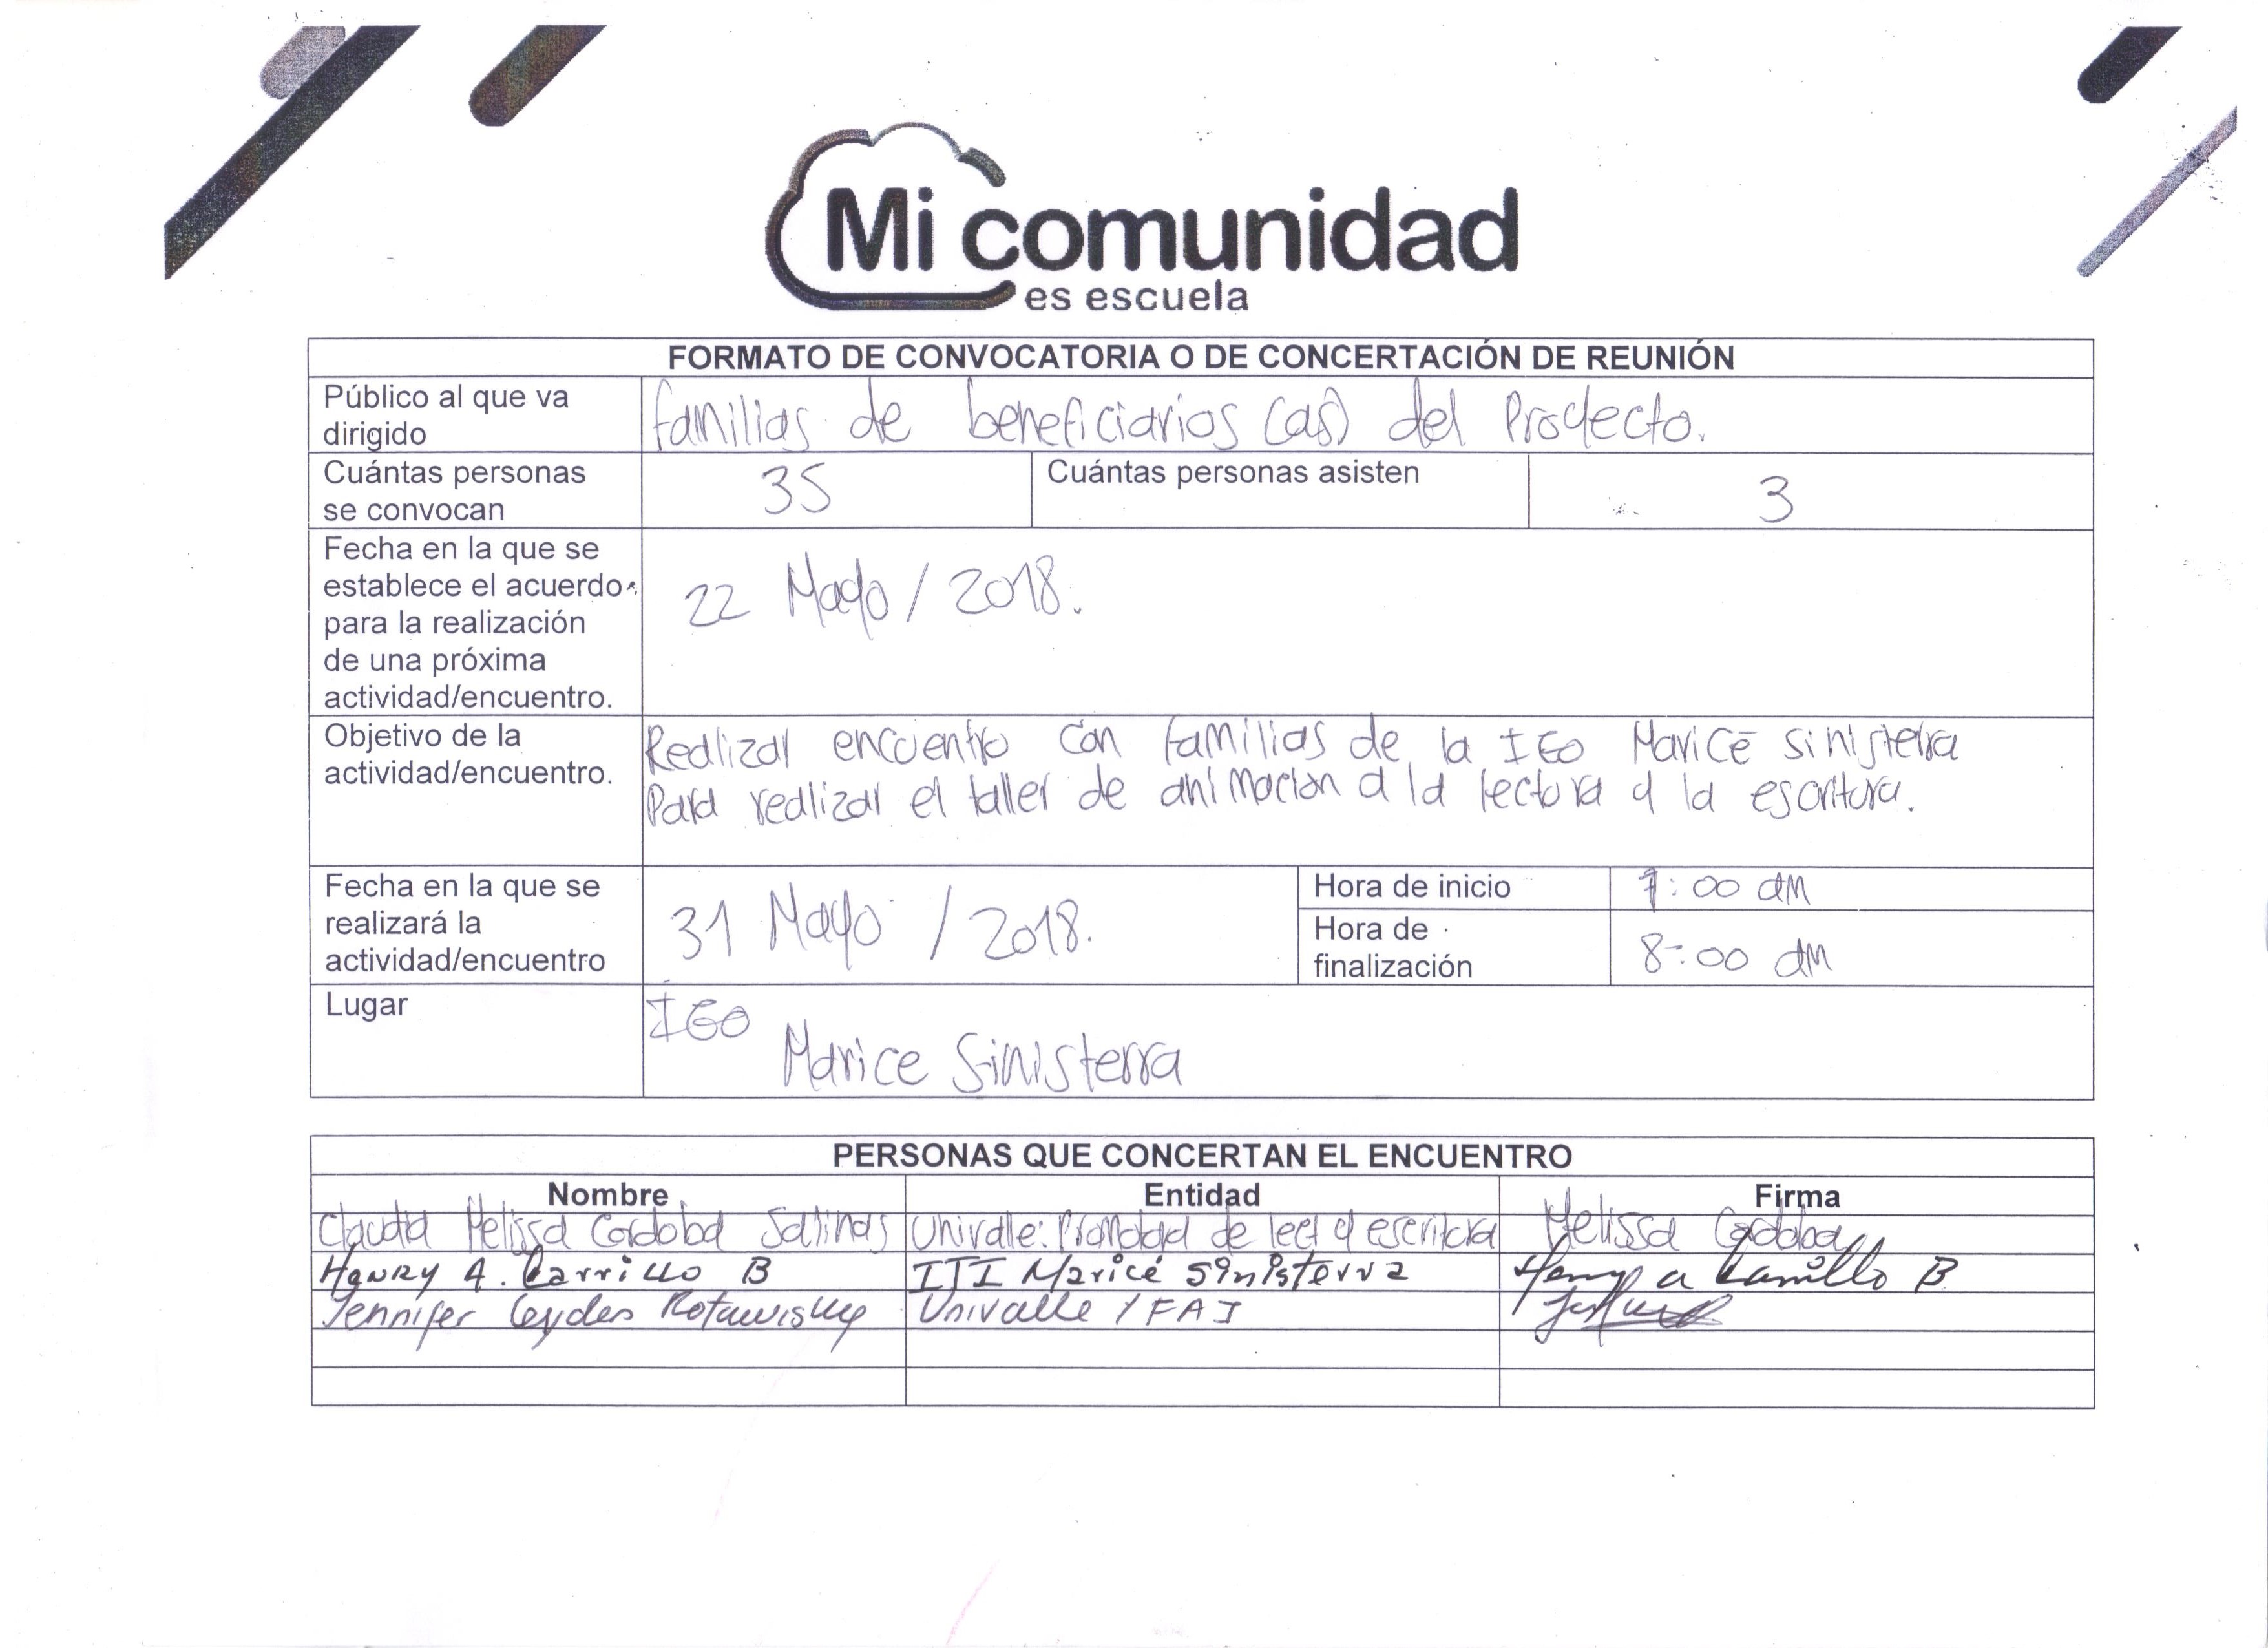 Mi comunidad
es escuela
FORMATO DE CONVOCATORIA O DE CONCERTACIÓN DE REUNIÓN
Público al que va
dirigido
familias de beneficiarios (as) del Proyecto.
Cuántas personas
se convocan
35
Cuántas personas asisten
3
Fecha en la que se
establece el acuerdo
para la realización
de una próxima
actividad/encuentro.
22 Mayo / 2018.
Objetivo de la
actividad/encuentro.
Realizar encuentro con familias de la IEO Maricé sinisterra
Para realizar el taller de animación a la lectura y la escritura.
Fecha en la que se
realizará la
actividad/encuentro
31 Mayo / 2018.
Hora de inicio
7:00 am
Hora de
finalización
8:00 am
Lugar
IEO
Marice Sinisterra
PERSONAS QUE CONCERTAN EL ENCUENTRO
Nombre Entidad Firma
Claudia Melissa Cordoba Salinas Univalle: de lect y escritura Melissa Cordoba
Henry A. Carrillo B ITI Maricé Sinisterra Henry a Carrillo B
Jennifer Univalle / FAI